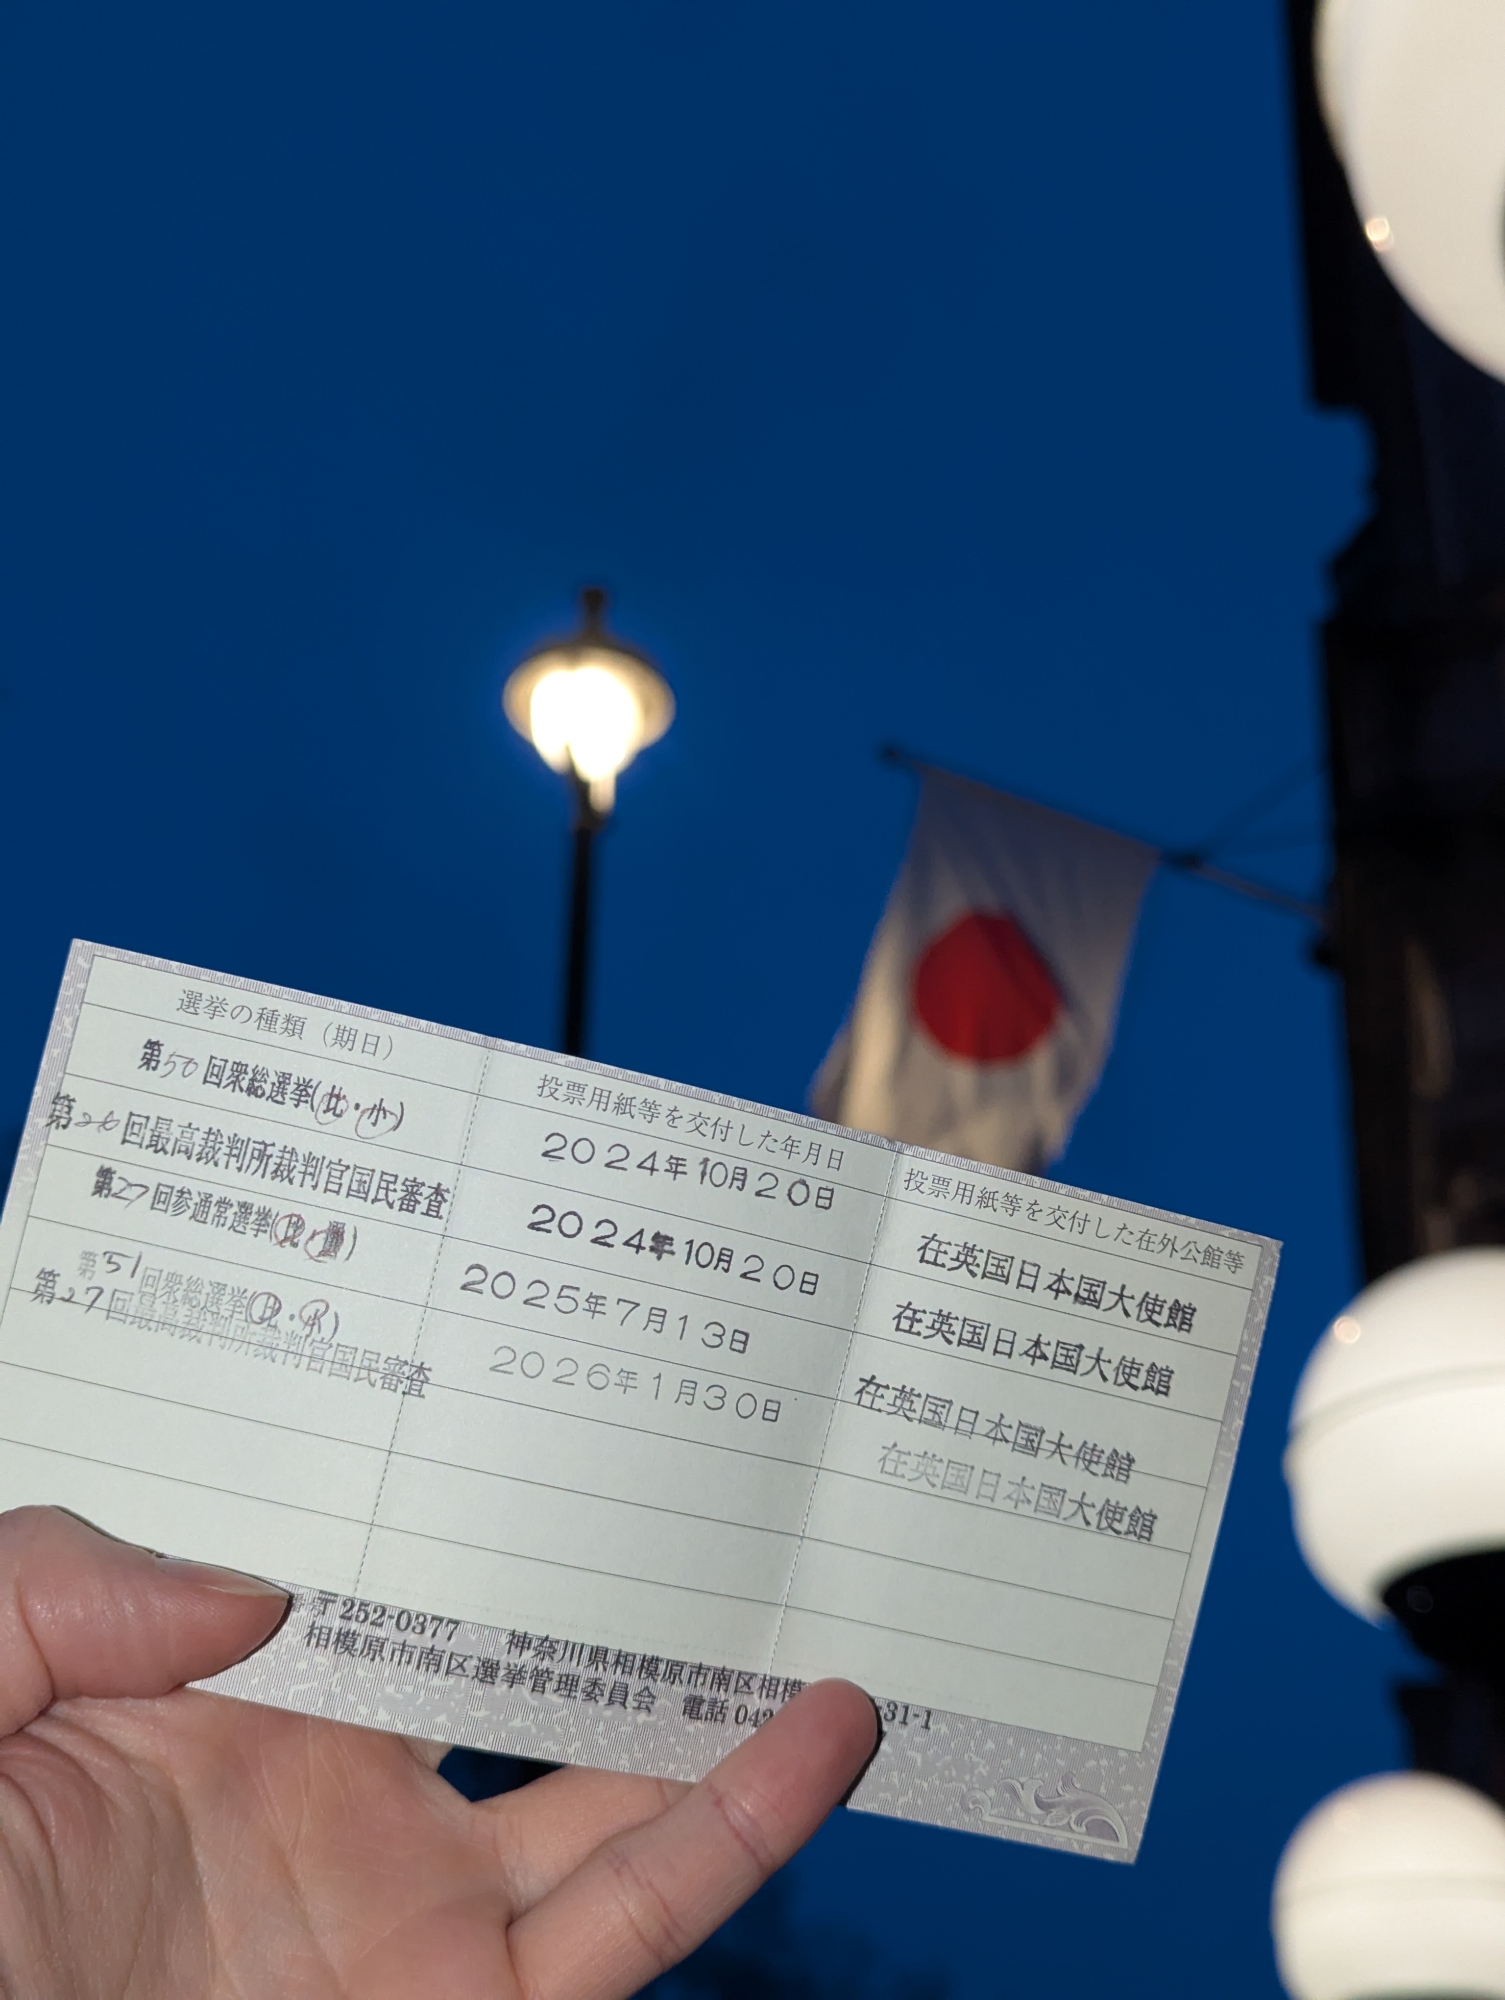 選挙の種類（期日） 投票用紙等を交付した年月日 投票用紙等を交付した在外公館等
第50回衆総選挙(比・小) 2024年10月20日 在英国日本国大使館
第26回最高裁判所裁判官国民審査 2024年10月20日 在英国日本国大使館
第27回参通常選挙(比・選) 2025年7月13日 在英国日本国大使館
第51回衆総選挙(比・小) 2026年1月30日 在英国日本国大使館
第27回最高裁判所裁判官国民審査
〒252-0377 神奈川県相模原市南区相模 31-1
相模原市南区選挙管理委員会 電話 042